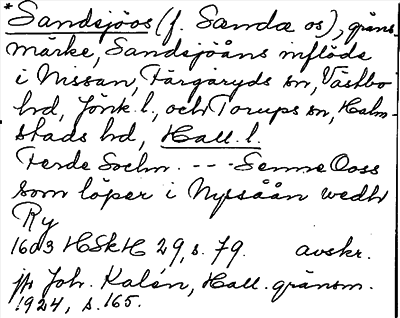 *Sandsjöos (f. Sandaos), gräns-
märke, Sandsjöåns inflöde
i Nissan, Färgaryds sn, Västbo
hd, Jönk. l., och Torups sn, Halm-
stads hd, Hall. l.
Ferde Soelm. --- Senne Ooss
som löper i Nysåån wedh
Ry
1603 HSkH 29, s. 79. avskr.
Joh. Kalén, Hall. gränsm.
1924, s. 165.